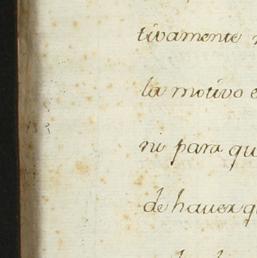 tivamente
la motivo
ni para qu
de haver q